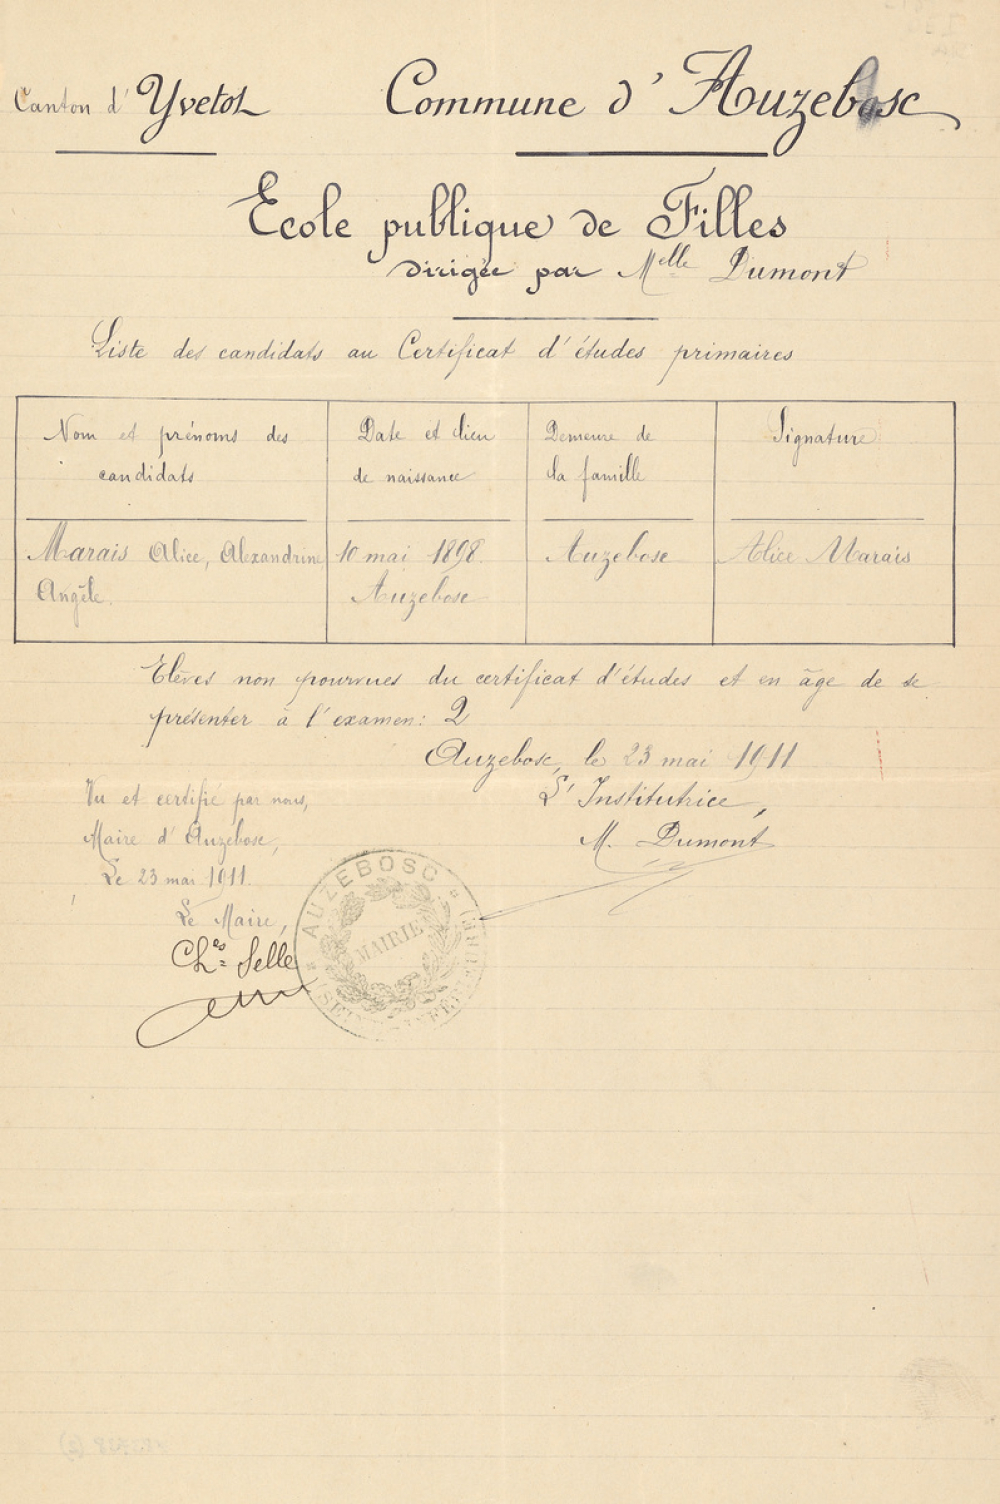 Canton d'Yvetot Commune d'Auzebosc
Ecole publique de Filles
dirigée par Melle Dumont
Liste des candidats au Certificat d'études primaires
Nom et prénoms des candidats
Date et lieu de naissance
Demeure de la famille
Signature
Marais Alice, Alexandrine
Angèle.
10 mai 1898.
Auzebosc
Auzebosc
Alice Marais
Elèves non pourvues du certificat d'études et en âge de se
présenter à l'examen: 2
Auzebosc, le 23 mai 1911
L'Institutrice,
M. Dumont
Vu et certifié par nous,
Maire d'Auzebosc,
Le 23 mai 1911.
Le Maire,
Ches Selle
AUZEBOSC
MAIRIE